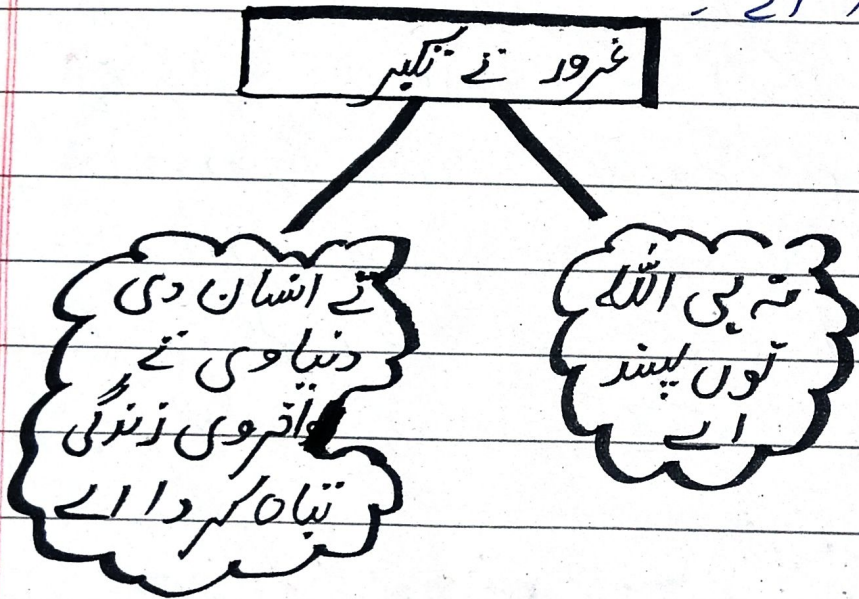 اے -
غرور تے تکبر
نہ ہی اللہ
نوں پسند
اے
تے انسان دی
دنیاوی تے
اُخروی زندگی
تباہ کر دا اے